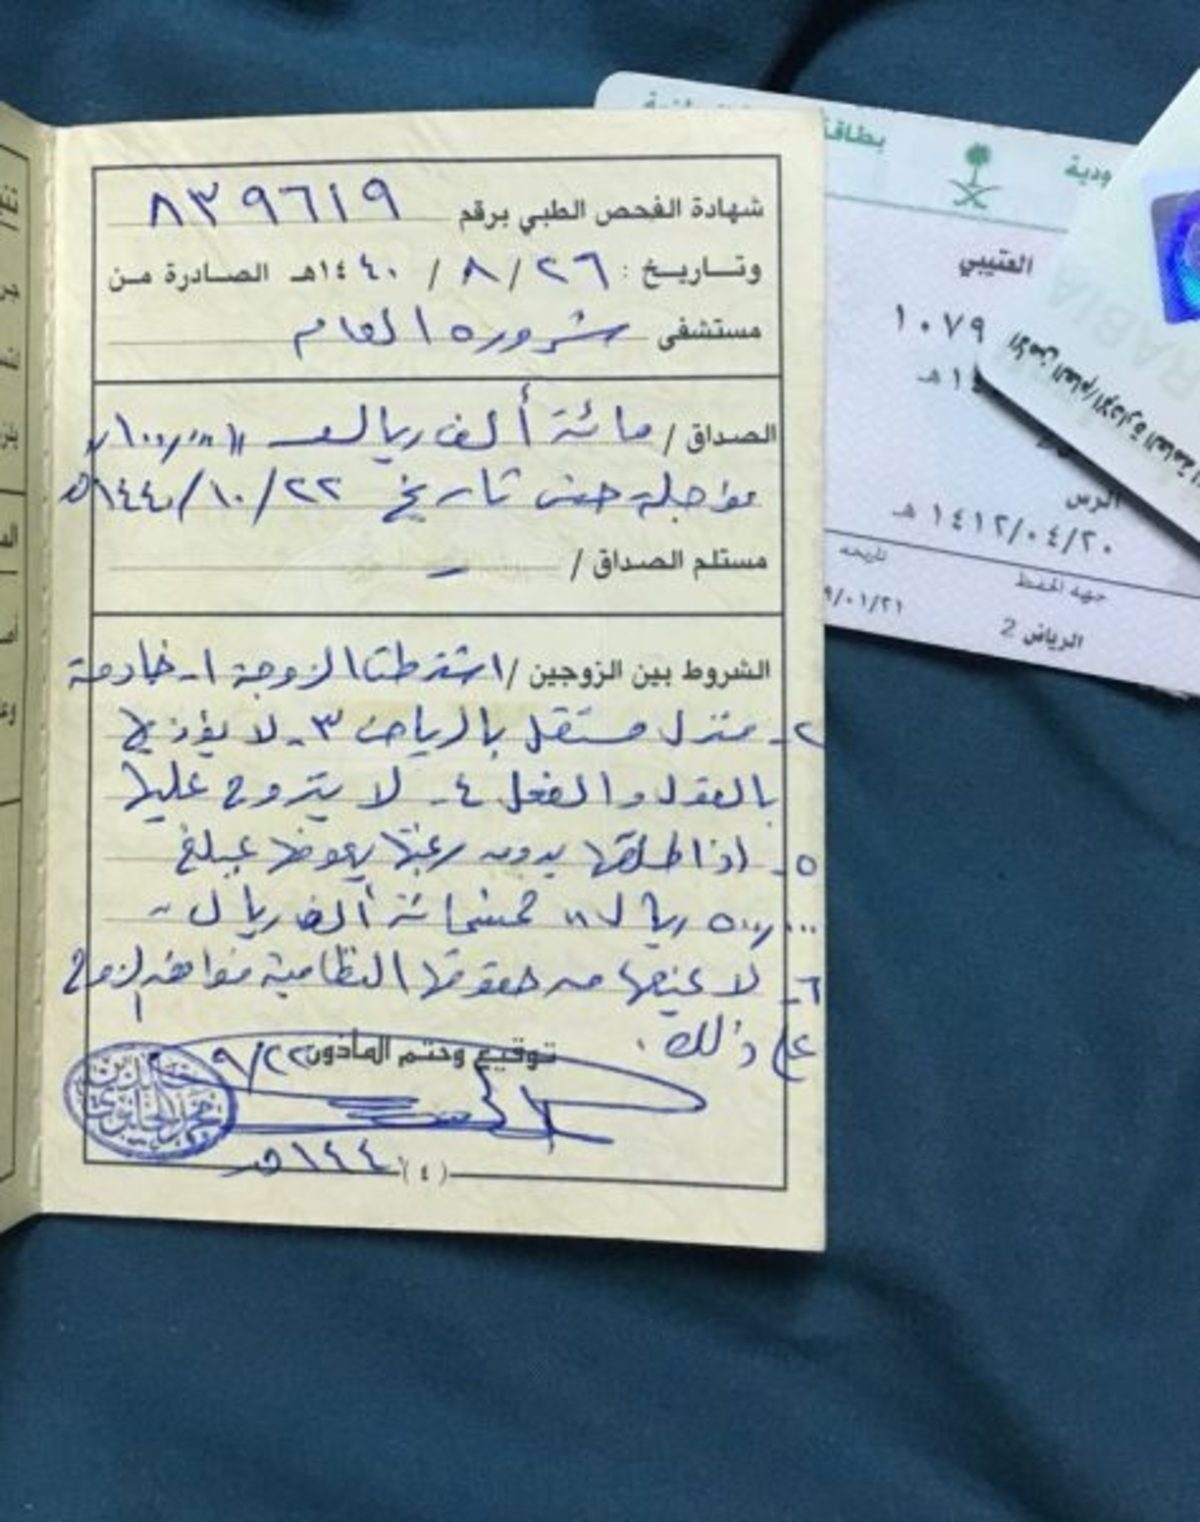 شهادة الفحص الطبي برقم ٨٣٩٦١٩
وتاريخ : ٢٦ / ٨ / ١٤٤٠هـ الصادرة من
مستشفى شروره العام
الصداق / مائة ألف ريال ١٠٠,٠٠٠
مؤجلة حتى تاريخ ٢٢/١٠/١٤٤٠هـ
مستلم الصداق / -
الشروط بين الزوجين / اشترطت الزوجة ١- خادمة
٢- منزل مستقل بالرياض ٣- لا يؤذيها
بالقول والفعل ٤- لا يتزوج عليها
٥- اذا طلقها بدون رغبتها يعوضها بمبلغ
٥٠٠,٠٠٠ ريال خمسمائة ألف ريال
٦- لا يمنعها من حقوقها النظامية موافقة الزوج
على ذلك .
توقيع وختم المأذون ٢٢/٩
١٤٤٠هـ
(٤)
بطاقة
ودية
العتيبي
١٠٧٩
الرس
١٤١٢/٠٤/٢٠ هـ
تاريخه
جهة الحفظ
٩/٠١/٢١
الرياض 2
الأمن العام/الإدارة العامة
RABIA